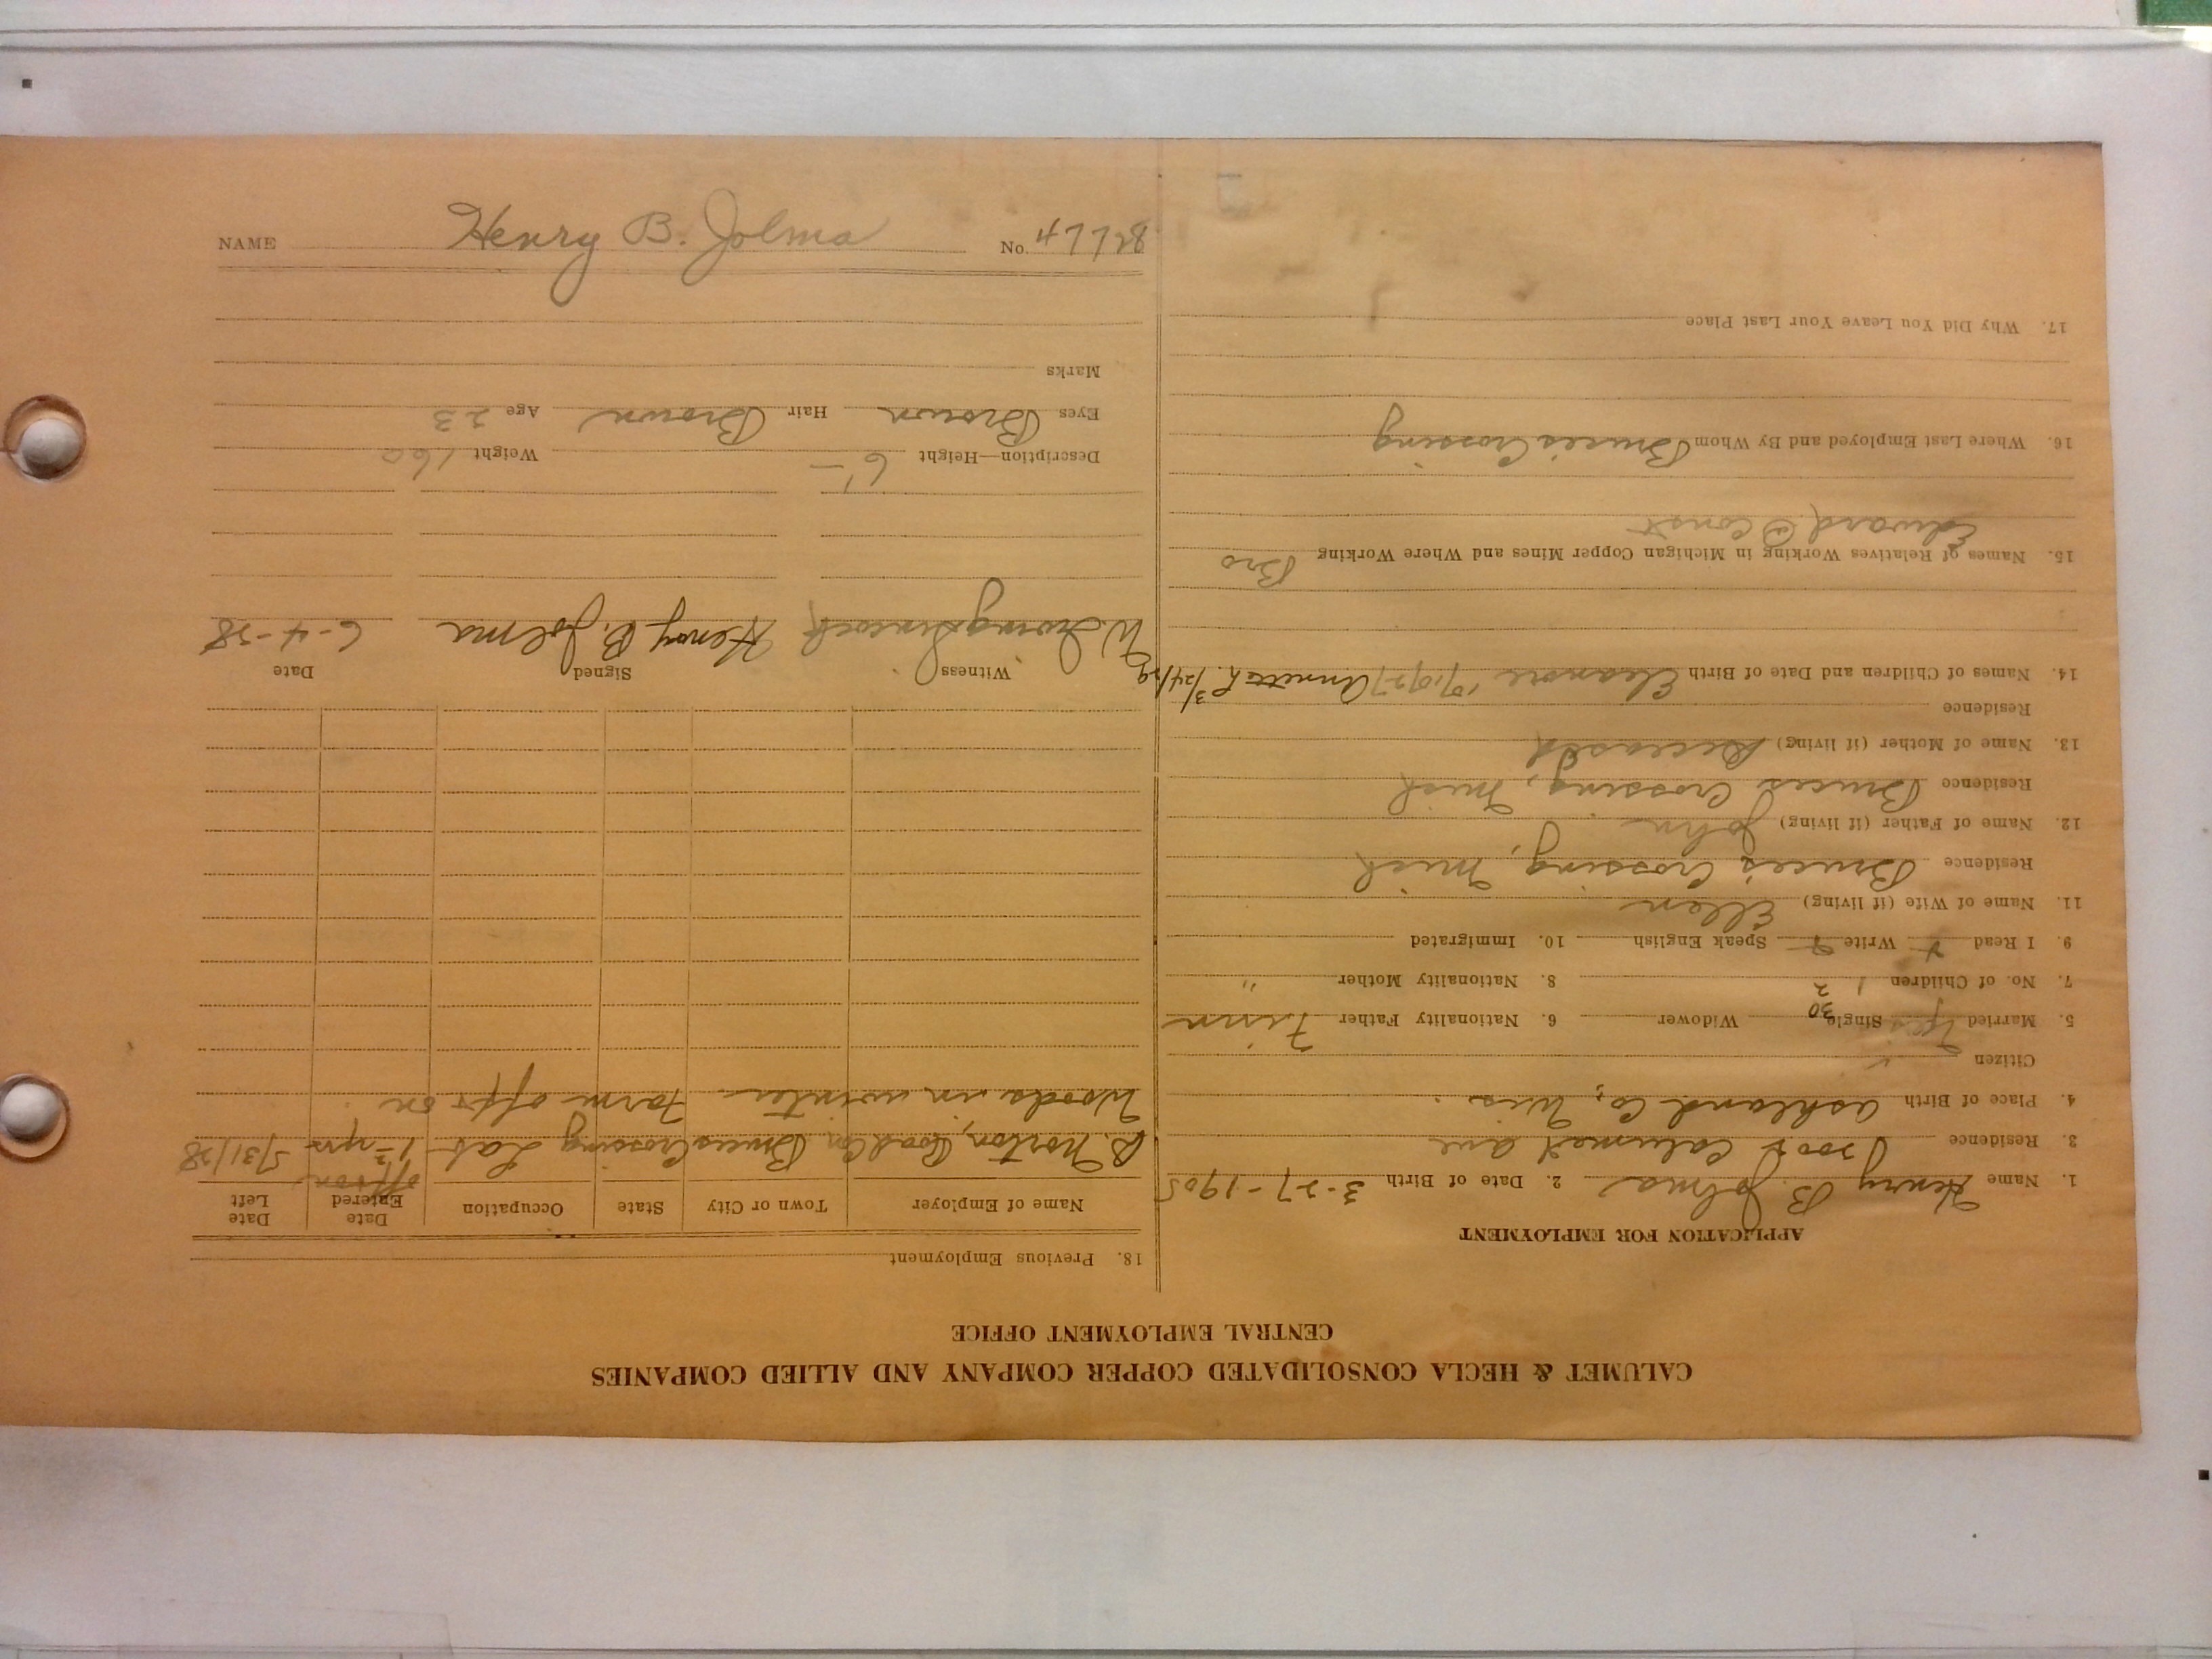 CALUMET & HECLA CONSOLIDATED COPPER COMPANY AND ALLIED COMPANIES
CENTRAL EMPLOYMENT OFFICE
APPLICATION FOR EMPLOYMENT
1. Name Henry B. Jolma 2. Date of Birth 3-27-1905
3. Residence Calumet ave
4. Place of Birth Ashland Co, Wis.
Citizen
5. Married Single 30 Widower 6. Nationality Father Finn
7. No. of Children 1 2 8. Nationality Mother "
9. I Read Write Speak English 10. Immigrated
11. Name of Wife (if living) Ellen
Residence Bruce's Crossing, Mich
12. Name of Father (if living) John
Residence Bruces Crossing, Mich
13. Name of Mother (if living) Deceased
Residence
14. Names of Children and Date of Birth Eleanore 1927 Annette L. 3/24/29
15. Names of Relatives Working in Michigan Copper Mines and Where Working Bro
Edward Const
16. Where Last Employed and By Whom Bruces Crossing
17. Why Did You Leave Your Last Place
18. Previous Employment
Name of Employer Town or City State Occupation Date Entered Date Left
Norton, Road Con Bruces Crossing Lab 5/31/28
Woods in winter Farm off & on
Witness Signed Date
W. Irving Henry B. Jolma 6-4-28
Description—Height 6' – Weight 160
Eyes Brown Hair Brown Age 23
Marks
NAME Henry B. Jolma No. 47728